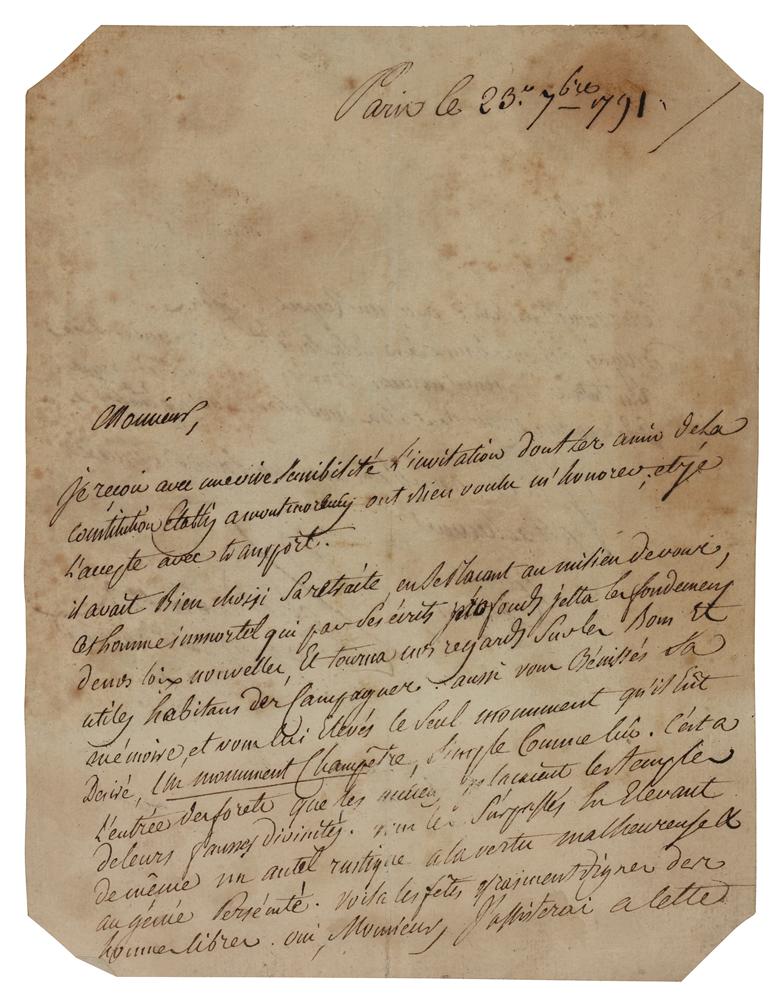 Paris le 23. 7bre 1791.
Monsieur,
je reçois avec une vive sensibilité l'invitation dont les amis de la
constitution Etablis a montmorency ont bien voulu m'honorer; et je
l'accepte avec transport.
il avait bien choisi sa retraite, en se plaçant au milieu de vous,
cet homme immortel qui par ses écrits profonds jetta les fondemens
de nos loix nouvelles, Et tourna nos regards sur les bons Et
utiles habitans des Campagnes. aussi vous bénissés sa
mémoire, et vous lui Elevés le seul monument qu'il Eût
Desiré, Un monument Champêtre, simple comme lui. C'est a
l'entrée des forets que les anciens plaçaient les temples
de leurs fausses divinités. vous les surpassés En Elevant
de même un autel rustique a la vertu malheureuse &
au génie Persécuté. voila les fêtes vraiment dignes des
hommes libres. oui, Monsieur, j'assisterai a cette